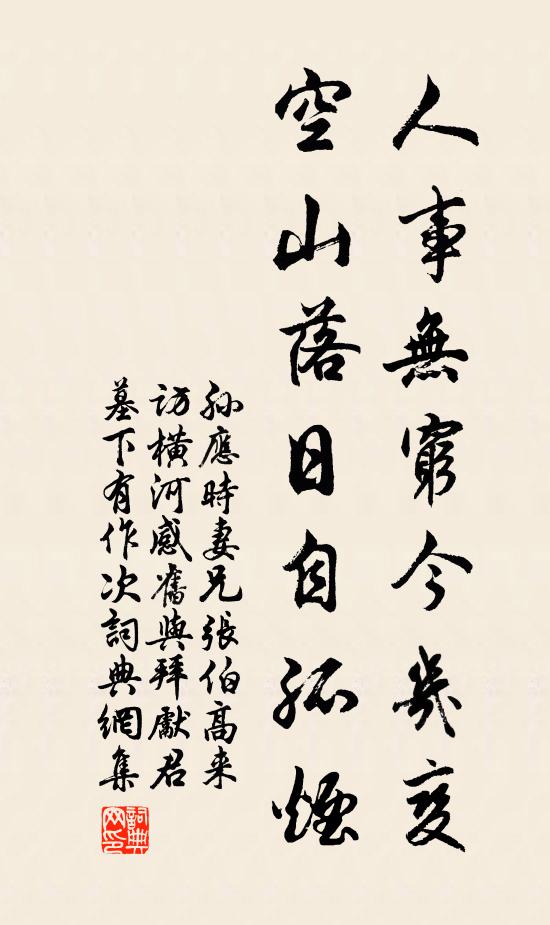 人事無窮今幾变
空山落日自孤煙
孫應時妻兄張伯高来
訪橫河感舊與拜獻君
墓下有作次詞典網集
詞典
网印